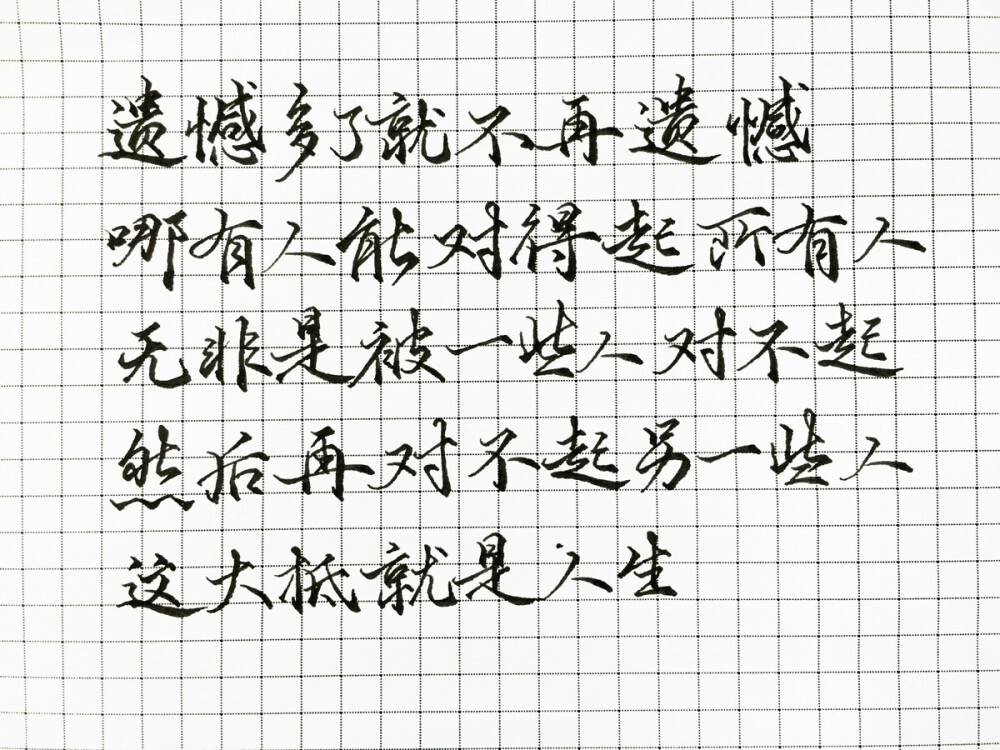 遗憾多了就不再遗憾
哪有人能对得起所有人
无非是被一些人对不起
然后再对不起另一些人
这大抵就是人生